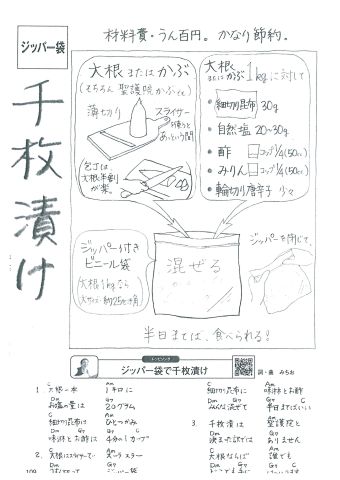 材料費・うん百円。かなり節約。
ジッパー袋
千枚漬け
大根またはかぶ
(もちろん聖護院かぶでも)
薄切り
スライサー
を使うと
あっという間
包丁は
大根半割り
が楽。
大根
またはかぶ1kgに対して
・細切り昆布 30g
・自然塩 20~30g
・酢 コップ1/4(50cc)
・みりん コップ1/4(50cc)
・輪切り唐辛子 少々
ジッパー付き
ビニール袋
(大根1kgなら
大サイズ・約25cm角)
混ぜる
ジッパーを閉じて、
半日まてば、食べられる!
ジッパー袋で千枚漬け
詞・曲 みちお
C Am
1 大根一本 1キロに
Dm G7
お塩の量は 20グラム
C Am
細切り昆布は ひとつかみ
Dm G7 C
味淋とお酢は 4分の1カップ
C Am
2 大根はスライサーで スーラスラー
Dm G7
ジッパー袋
C Am
細切り昆布に 味淋とお酢
Dm G7 C
みんな混ぜて 半日まてばいい
C Am
3 千枚漬は 聖護院と
Dm G7
決まった訳では ありません
C Am
大根ならば 誰でも
Dm G7 C